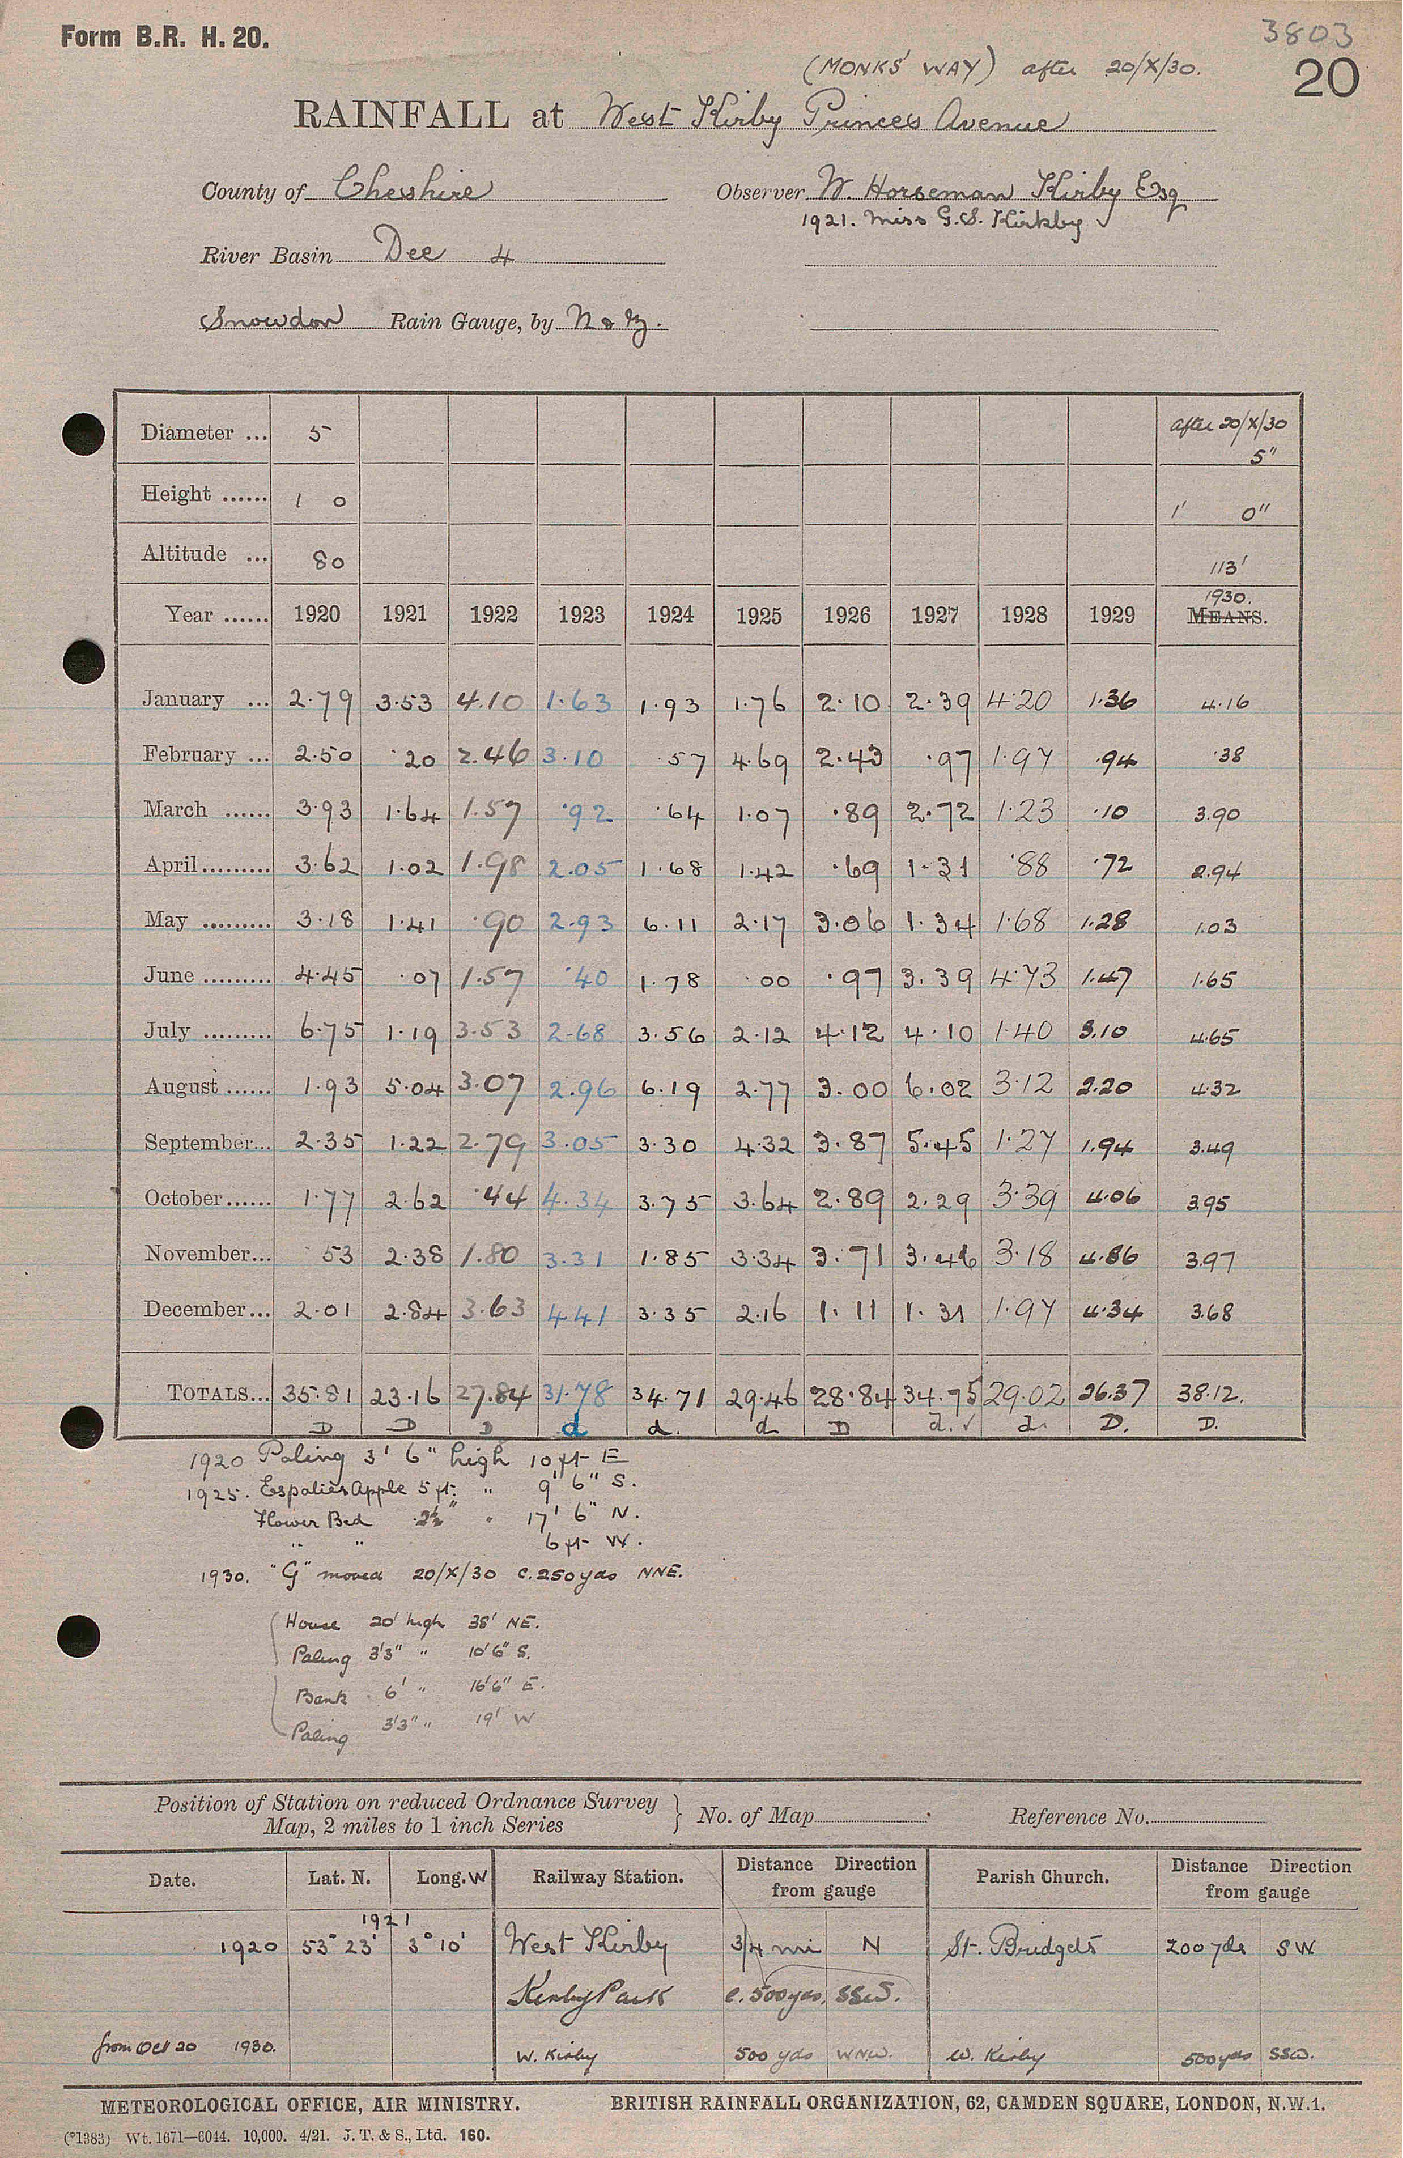 Form B.R. H. 20.
3803
(MONKS' WAY) after 20/X/30.
20
RAINFALL at West Kirby Princes Avenue
County of Cheshire Observer W. Horseman Kirby Esq
1921. Miss G.S. Kirkby
River Basin Dee 4
Snowdon Rain Gauge, by N & Z.
Diameter ... 5 after 20/X/30 5"
Height ...... 1 0 1' 0"
Altitude ... 80 113'
Year ...... 1920 1921 1922 1923 1924 1925 1926 1927 1928 1929 1930. MEANS.
January ... 2.79 3.53 4.10 1.63 1.93 1.76 2.10 2.39 4.20 1.36 4.16
February ... 2.50 .20 2.46 3.10 .57 4.69 2.43 .97 1.97 .94 .38
March ...... 3.93 1.64 1.57 .92 .64 1.07 .89 2.72 1.23 .10 3.90
April ......... 3.62 1.02 1.98 2.05 1.68 1.42 .69 1.31 .88 .72 2.94
May ......... 3.18 1.41 .90 2.93 6.11 2.17 3.06 1.34 1.68 1.28 1.03
June ......... 4.45 .07 1.57 .40 1.78 .00 .97 3.39 4.73 1.47 1.65
July ......... 6.75 1.19 3.53 2.68 3.56 2.12 4.12 4.10 1.40 3.10 4.65
August ...... 1.93 5.04 3.07 2.96 6.19 2.77 3.00 6.02 3.12 2.20 4.32
September... 2.35 1.22 2.79 3.05 3.30 4.32 3.87 5.45 1.27 1.94 3.49
October ...... 1.77 2.62 .44 4.34 3.75 3.64 2.89 2.29 3.39 4.06 3.95
November... .53 2.38 1.80 3.31 1.85 3.34 3.71 3.46 3.18 4.86 3.97
December... 2.01 2.84 3.63 4.41 3.35 2.16 1.11 1.31 1.97 4.34 3.68
TOTALS... 35.81 23.16 27.84 31.78 34.71 29.46 28.84 34.75 29.02 26.37 38.12.
D D D d d. d D d. ✓ d. D. D.
1920 Paling 3' 6" high 10ft E
1925. Espalier Apple 5 ft. " 9' 6" S.
Flower Bed 2½" " 17' 6" N.
" " 6 ft W.
1930. "G" moved 20/X/30 c. 250 yds NNE.
House 20' high 38' NE.
Paling 3'3" " 10'6" S.
Bank 6' " 16'6" E.
Paling 3'3" " 19' W
Position of Station on reduced Ordnance Survey
Map, 2 miles to 1 inch Series } No. of Map Reference No.
Date. Lat. N. Long. W Railway Station. Distance Direction from gauge Parish Church. Distance Direction from gauge
1921
1920 53° 23' 3° 10' West Kirby 3/4 mi N St. Bridgets 200 yds SW
Kirby Park c. 500 yds. SSW.
from Oct 20 1930. W. Kirby 500 yds WNW. W. Kirby 500 yds SSW.
METEOROLOGICAL OFFICE, AIR MINISTRY. BRITISH RAINFALL ORGANIZATION, 62, CAMDEN SQUARE, LONDON, N.W.1.
(*1383) Wt. 1671—6044. 10,000. 4/21. J. T. & S., Ltd. 160.